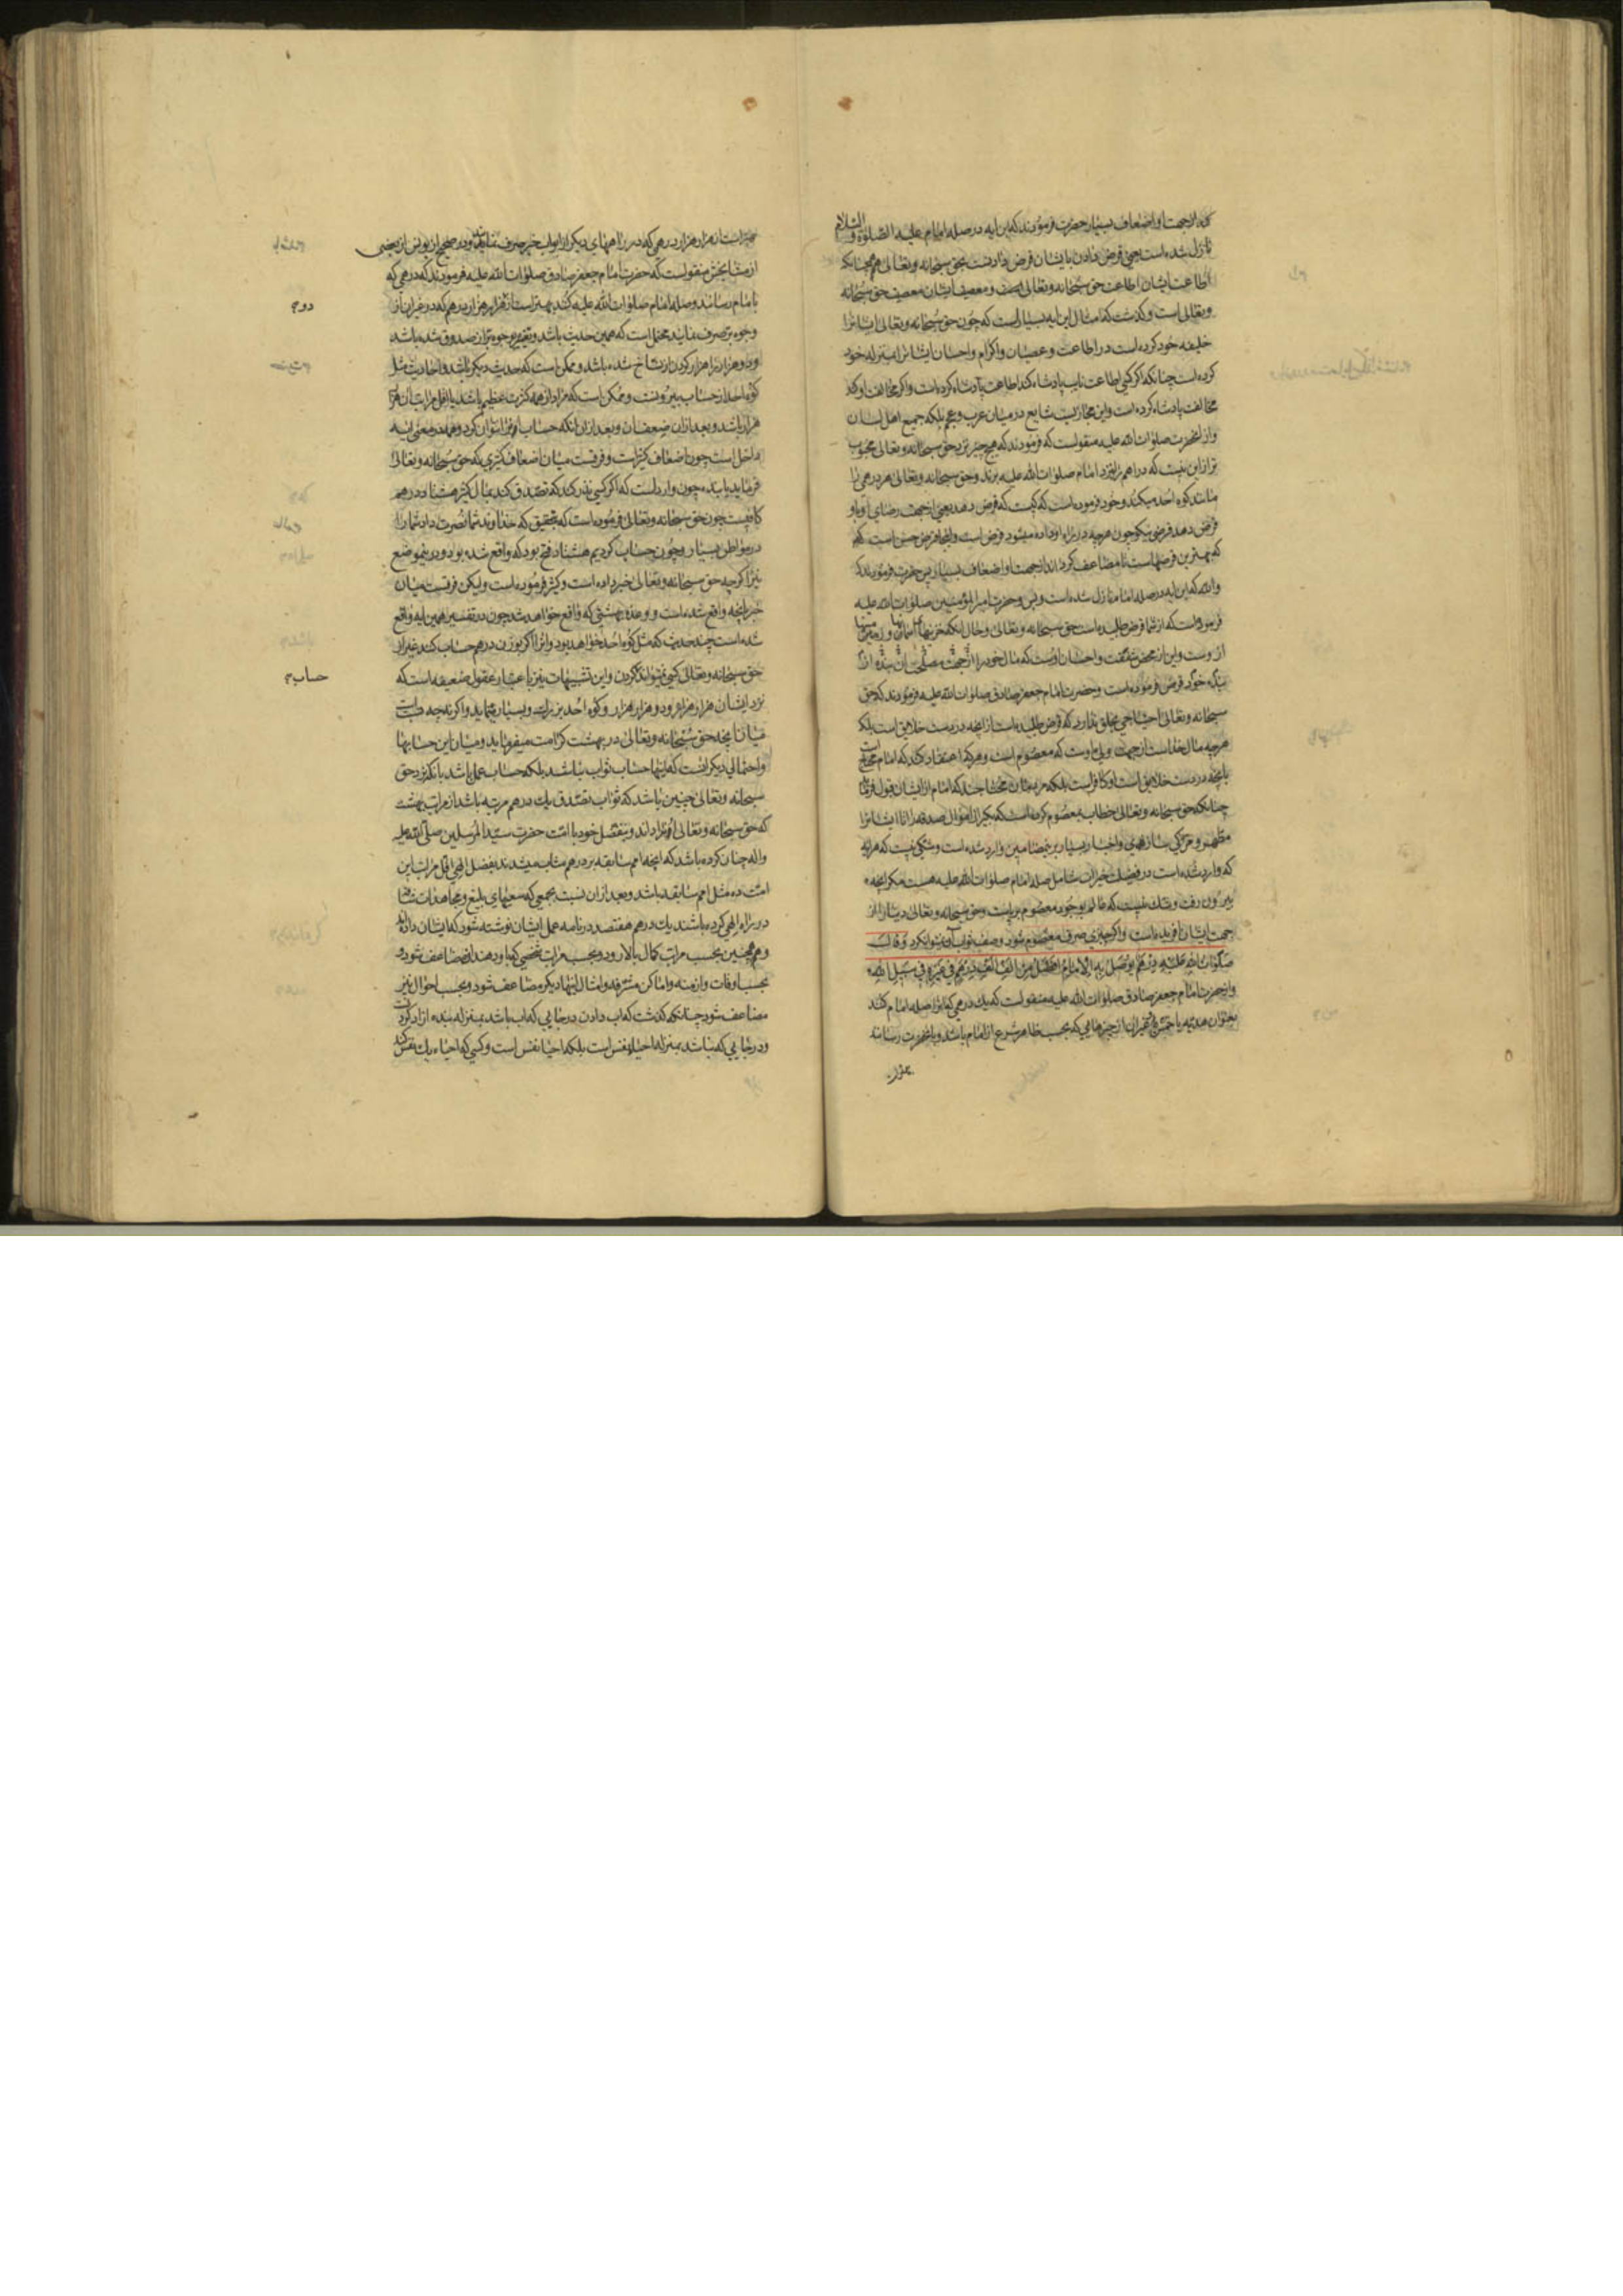 از جهت او اضعاف بسیار حضرت فرمودند که این آیه در صله امام علیه الصلوة والسلام
نازل شده است یعنی قرض دادن بایشان قرض دادنست بحق سبحانه وتعالی همچنانکه
اطاعت ایشان اطاعت حق سبحانه وتعالی است ومعصیت ایشان معصیت حق سبحانه
وتعالی است وکذشت که امثال این آیه بسیار است که چون حق سبحانه وتعالی ایشانرا
خلیفه خود کرده است در اطاعت وعصیان واکرام واحسان ایشانرا بمنزله خود
کرده است چنانکه اکر کسی اطاعت نایب پادشاه کند اطاعت پادشاه کرده است واکر مخالفت او کند
مخالفت پادشاه کرده است واین مجازیست شایع در میان عرب وعجم بلکه جمیع اهل لسان
واز انحضرت صلوات الله علیه منقولست که فرمودند که هیچ چیز نزد حق سبحانه وتعالی محبوب
تر از این نیست که دراهم را نزد امام صلوات الله علیه برند وحق سبحانه وتعالی هر درهمی را
مانند کوه احد میکند وخود فرموده است که کیست که قرض دهد یعنی از جهت رضای او
قرض دهد قرضی نیکو چون هرچه در راه او داده میشود قرض است قرض حسن است
که بهترین قرضهاست تا مضاعف کرداند از جهت او اضعاف بسیار پس حضرت فرمودند که
والله که این آیه در صله امام نازل شده است وبس وحضرت امیر المؤمنین صلوات الله علیه
فرموده است که از شما قرض طلبیده است حق سبحانه وتعالی وحال آنکه خزینهای آسمانها وزمینها
از وست واین از محض شفقت واحسان اوست که مال خود را از جهت مصلحت بنده از
بنده خود قرض فرموده است وحضرت امام جعفر صادق صلوات الله علیه فرمودند که حق
سبحانه وتعالی احتیاجی بخلق ندارد که قرض طلبیده است از انچه در دست خلایق است بلکه
هرچه مال خداست از جهت ولی اوست که معصوم است وهرکه اعتقاد کند که امام محتاج است
بانچه در دست خلایق است او کافر است بلکه مردمان محتاجند که امام از ایشان قبول فرماید
چنانکه حق سبحانه وتعالی خطاب بمعصوم کرده است که بکیر از اموال صدقه را تا ایشانرا
مطهر ومزکی سازی واخبار بسیار بر این مضامین وارد شده است وشکی نیست که هر آیه
که وارد شده است در فضیلت خیرات شامل صله امام صلوات الله علیه هست مکر انچه
بیرون رفت وشک نیست که عالم بوجود معصوم برپاست وحق سبحانه وتعالی دنیا را از
جهت ایشان افریده است واکر چیزی صرف معصوم شود وصف ثواب آن نتوان کرد وقال
صَلَواتُ اللهِ عَلَیْهِ دِرْهَمٌ یُوصَلُ بِهِ الْاِمَامُ اَفْضَلُ مِنْ اَلْفِ اَلْفِ دِرْهَمٍ فِی غَیْرِهِ فِی سَبِیلِ اللهِ
واز حضرت امام جعفر صادق صلوات الله علیه منقولست که یک درهمی که انرا صله امام کنند
بعنوان هدیه یا خمس وغیر ان از چیزهایی که بحسب ظاهر شرع از امام باشد وبانحضرت رسانند
بهتر است از هزار هزار درهمی که در راههای دیکر از ابواب خیر صرف نمایند ودر صحیح از یونس از بعضی
از مشایخش منقولست که حضرت امام جعفر صادق صلوات الله علیه فرمودند که درهمی که
بامام رسانند وصله امام صلوات الله علیه کنند بهتر است از هزار هزار درهم که در غیر ان از
وجوه بر صرف نمایند محتمل است که همین حدیث باشد وتغییر وجوه بر از صدوق شده باشد
ودو هزار را هزار کردن از نساخ شده باشد وممکن است که حدیث دیکر باشد واحادیث مثل
کوه احد از حساب بیرونست وممکن است که مراد از همه کثرت عظیم باشد یا اقل مراتب آن هزار
هزار باشد وبعد از ان ضعف آن وبعد از ان انکه حساب او نتوان کرد وهمه در معنی آیه
داخل است چون اضعاف کثیره است وفرقست میان اضعاف کثیری که حق سبحانه وتعالی
فرماید یا بنده چون وارد است که اکر کسی نذر کند که تصدق کند بمال کثیر هشتاد درهم
کافیست چون حق سبحانه وتعالی فرموده است که بتحقیق که خداوند شما نصرت داد شما را
در مواطن بسیار وچون حساب کردیم هشتاد فتح بود که واقع شده بود ودر اینموضع
نیز اکرچه حق سبحانه وتعالی خبر داده است وکثیر فرموده است ولیکن فرقست میان
خبر بانچه واقع شده است ووعده بهشتی که واقع خواهد شد چون در تفسیر همین آیه واقع
شده است چند حدیث که مثل کوه احد خواهد بود وانرا اکر بوزن درهم حساب کنند غیر از
حق سبحانه وتعالی کسی نمیتواند کردن واین تشبیهات نیز باعتبار عقول ضعیفه است که
نزد ایشان هزار هزار ودو هزار هزار وکوه احد بزرک وبسیار مینماید واکرنه چه نسبت است
میان انچه حق سبحانه وتعالی در بهشت کرامت میفرماید ومیان این حسابها
واحتمالی دیکر انست که اینها حساب ثواب نباشد بلکه حساب عمل باشد بانکه نزد حق
سبحانه وتعالی چنین باشد که ثواب تصدق یک درهم مرتبه باشد از مراتب بهشت
که حق سبحانه وتعالی داند وبتفضل خود با امت حضرت سید المرسلین صلی الله علیه
واله چنان کرده باشد که انچه امم سابقه بر درهم مثاب میشدند بفضل الهی اقل مراتب این
امت ده مثل امم سابقه باشد وبعد از ان نسبت بجمعی که سعیهای بلیغ ومجاهدات شاقه
در راه الهی کرده باشند یک درهم هفتصد در نامه عمل ایشان نوشته شود که ایشان داده اند
وهمچنین بحسب مراتب کمال بالا رود وبحسب مراتب شخصی که باو دهند مضاعف شود و
بحسب اوقات وازمنه واماکن مشرفه وامثال اینها دیکر مضاعف شود وبحسب احوال نیز
مضاعف شود چنانکه کذشت که آب دادن در جایی که آب باشد بمنزله بنده ازاد کردنست
ودر جایی که نباشد بمنزله احیاء نفس است بلکه احیا نفس است وکسی که احیاء یک نفس کند
دوم
حساب م